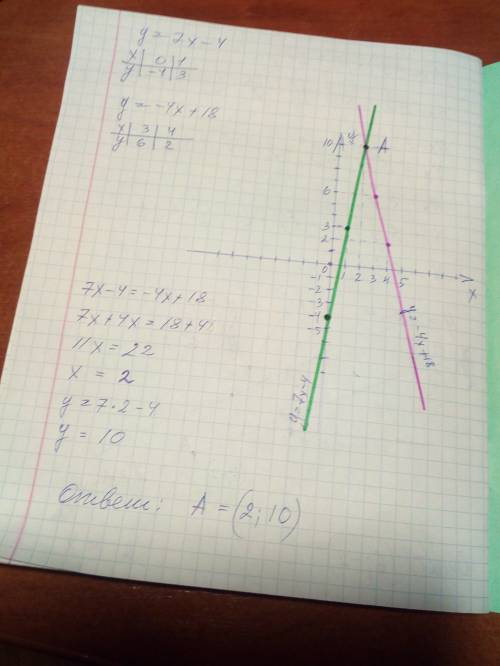 y = 7x - 4
x | 0 | 1
y | -4 | 3
y = -4x + 18
x | 3 | 4
y | 6 | 2
7x - 4 = -4x + 18
7x + 4x = 18 + 4
11x = 22
x = 2
y = 7 · 2 - 4
y = 10
Ответ: A = (2; 10)
y
10
A
6
3
2
0
1 2 3 4 5
x
-1
-2
-3
-4
-5
y = 7x - 4
y = -4x + 18